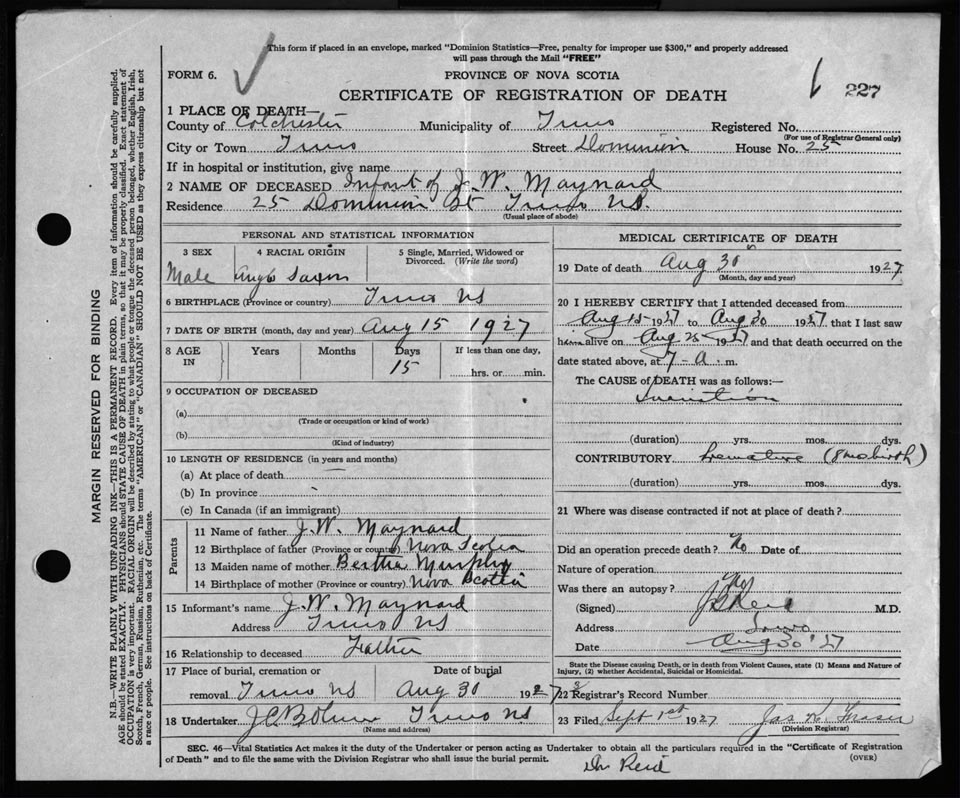 This form if placed in an envelope, marked "Dominion Statistics—Free, penalty for improper use $300," and properly addressed
will pass through the Mail "FREE"
FORM 6.
PROVINCE OF NOVA SCOTIA
CERTIFICATE OF REGISTRATION OF DEATH
227
1 PLACE OF DEATH
County of Colchester Municipality of Truro Registered No.
(For use of Registrar General only)
City or Town Truro Street Dominion House No. 25
If in hospital or institution, give name
2 NAME OF DECEASED Infant of J. W. Maynard
Residence 25 Dominion St Truro NS.
(Usual place of abode)
PERSONAL AND STATISTICAL INFORMATION
3 SEX 4 RACIAL ORIGIN 5 Single, Married, Widowed or Divorced. (Write the word)
Male Anglo Saxon
6 BIRTHPLACE (Province or country) Truro NS
7 DATE OF BIRTH (month, day and year) Aug 15 1927
8 AGE IN Years Months Days If less than one day,
15 hrs. or min.
9 OCCUPATION OF DECEASED
(a)
(Trade or occupation or kind of work)
(b)
(Kind of industry)
10 LENGTH OF RESIDENCE (in years and months)
(a) At place of death
(b) In province
(c) In Canada (if an immigrant)
Parents
11 Name of father J. W. Maynard
12 Birthplace of father (Province or country) Nova Scotia
13 Maiden name of mother Bertha Murphy
14 Birthplace of mother (Province or country) Nova Scotia
15 Informant's name J. W. Maynard
Address Truro NS
16 Relationship to deceased Father
17 Place of burial, cremation or Date of burial
removal Truro NS Aug 30 1927
18 Undertaker Truro NS
(Name and address)
MEDICAL CERTIFICATE OF DEATH
19 Date of death Aug 30 1927
(Month, day and year)
20 I HEREBY CERTIFY that I attended deceased from
Aug 15 1927 to Aug 30 1927 that I last saw
him alive on Aug 25 1927 and that death occurred on the
date stated above, at 7 - A. m.
The CAUSE of DEATH was as follows:—
Inanition
(duration) yrs. mos. dys.
CONTRIBUTORY Premature (8 mo birth)
(duration) yrs. mos. dys.
21 Where was disease contracted if not at place of death?
Did an operation precede death? No Date of
Nature of operation
Was there an autopsy? No
(Signed) Reid M.D.
Address Truro
Date Aug 30 '27
State the Disease causing Death, or in death from Violent Causes, state (1) Means and Nature of
Injury, (2) whether Accidental, Suicidal or Homicidal.
22 Registrar's Record Number
23 Filed Sept 1st 1927 Jas Fraser
(Division Registrar)
SEC. 46—Vital Statistics Act makes it the duty of the Undertaker or person acting as Undertaker to obtain all the particulars required in the "Certificate of Registration
of Death" and to file the same with the Division Registrar who shall issue the burial permit.
(OVER)
Dr Reid
MARGIN RESERVED FOR BINDING
N.B.—WRITE PLAINLY WITH UNFADING INK—THIS IS A PERMANENT RECORD. Every item of information should be carefully supplied.
AGE should be stated EXACTLY. PHYSICIANS should STATE CAUSE OF DEATH in plain terms, so that it may be properly classified. Exact statement of
OCCUPATION is very important. RACIAL ORIGIN will be described by stating to what people or tongue the deceased person belonged, whether English, Irish,
Scotch, French, German, Russian, Ruthenian, etc. The terms "AMERICAN" or "CANADIAN" SHOULD NOT BE USED as they express citizenship but not
a race or people. See instructions on back of Certificate.